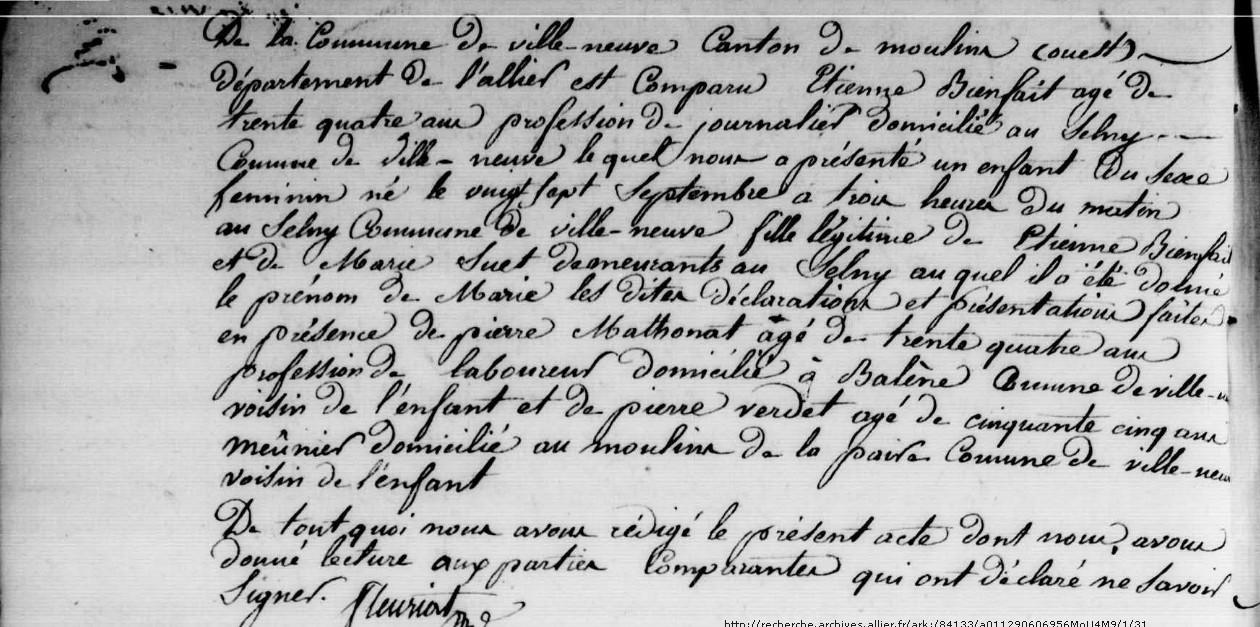 De la Commune de ville-neuve Canton de moulins (ouest)
département de l'allier est Comparu Etienne Bienfait agé de
trente quatre ans profession de journalier domicilié au Selny
Comune de Ville-neuve le quel nous a présenté un enfant Du Sexe
feminin né le vingt sept Septembre a trois heures Du matin
au Selny Commune De ville-neuve fille légitime de Etienne Bienfait
et de Marie Suet demeurants au Selny au quel il a été donné
le prénom de Marie les dites déclarations et présentations faites
en présence de pierre Mathonat agé de trente quatre ans
profession de laboureur domicilié à Balène Comune de ville-
voisin de l'enfant et de pierre verdet agé de cinquante cinq ans
meûnier domicilié au moulins de la Comune de ville-neuv
voisin de l'enfant
De tout quoi nous avons rédigé le présent acte dont nous avons
donné lecture aux parties Comparantes qui ont déclaré ne Savoir
Signer. Fleuriat
http://recherche.archives.allier.fr/ark:/84133/a011290606956MoU4M9/1/31